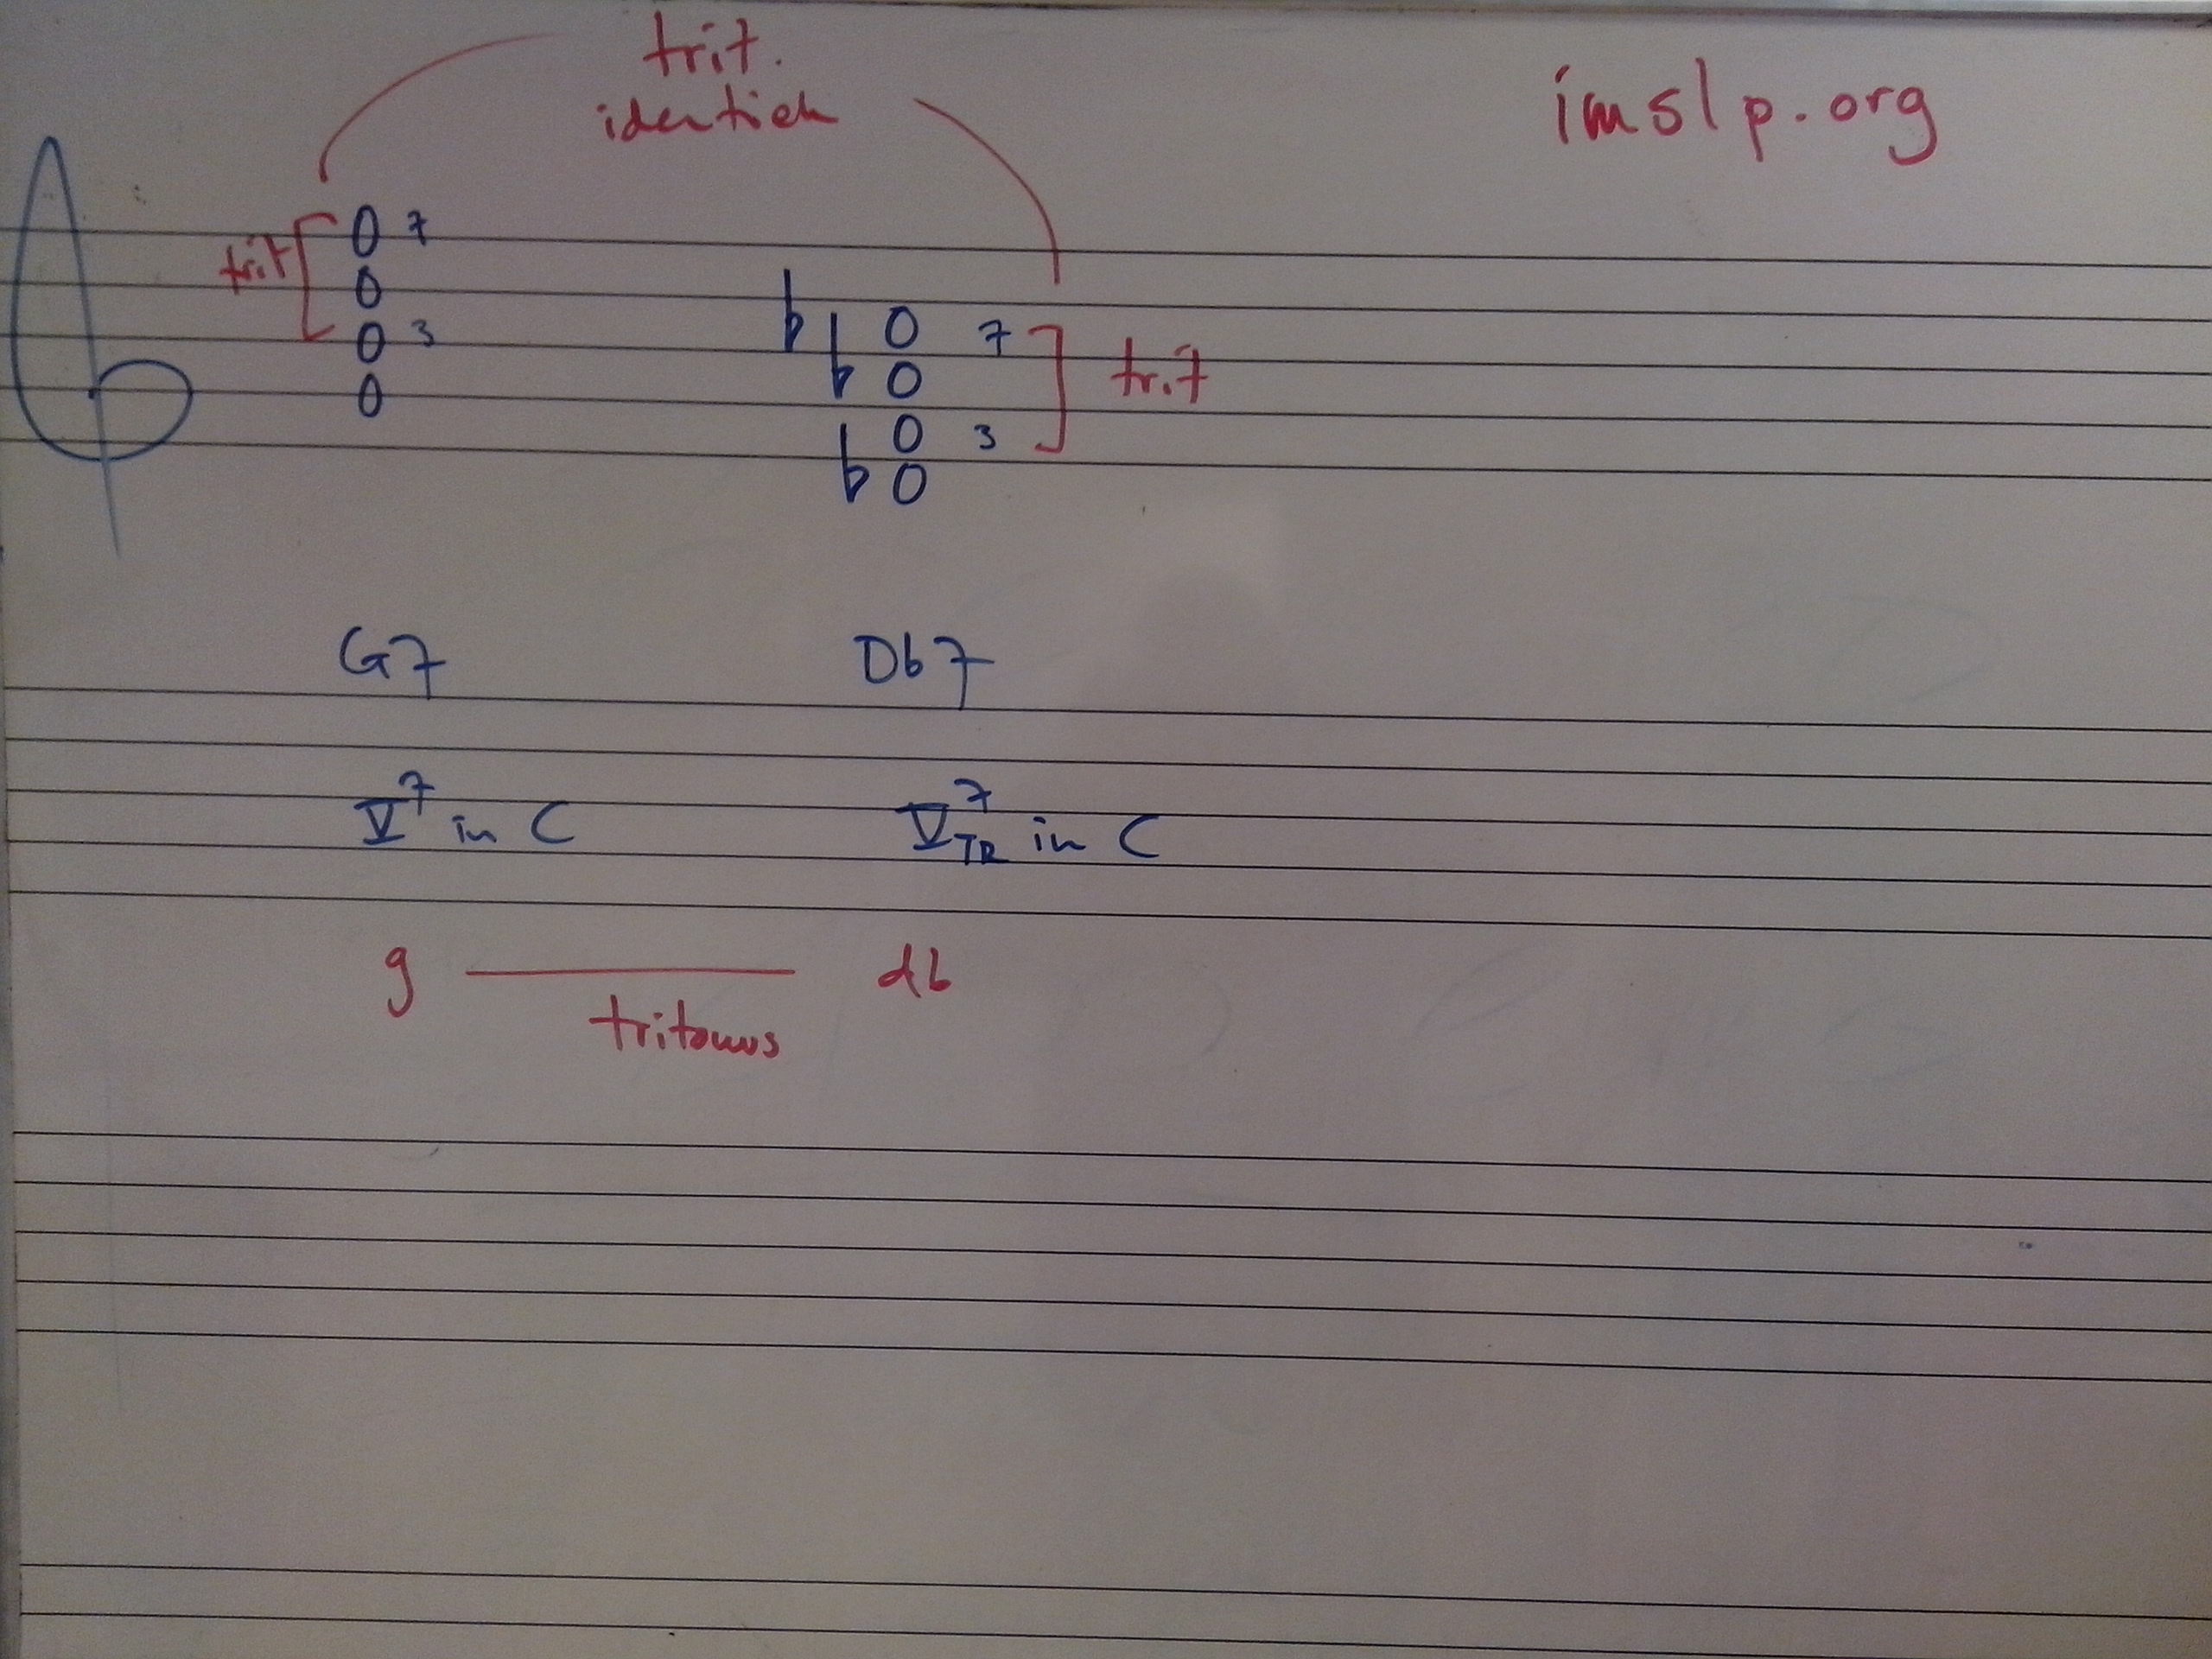 trit.
identich
imslp.org
7
trit
3
7
trit
3
G7
Db7
V7 in C
V7TR in C
g
db
tritonus